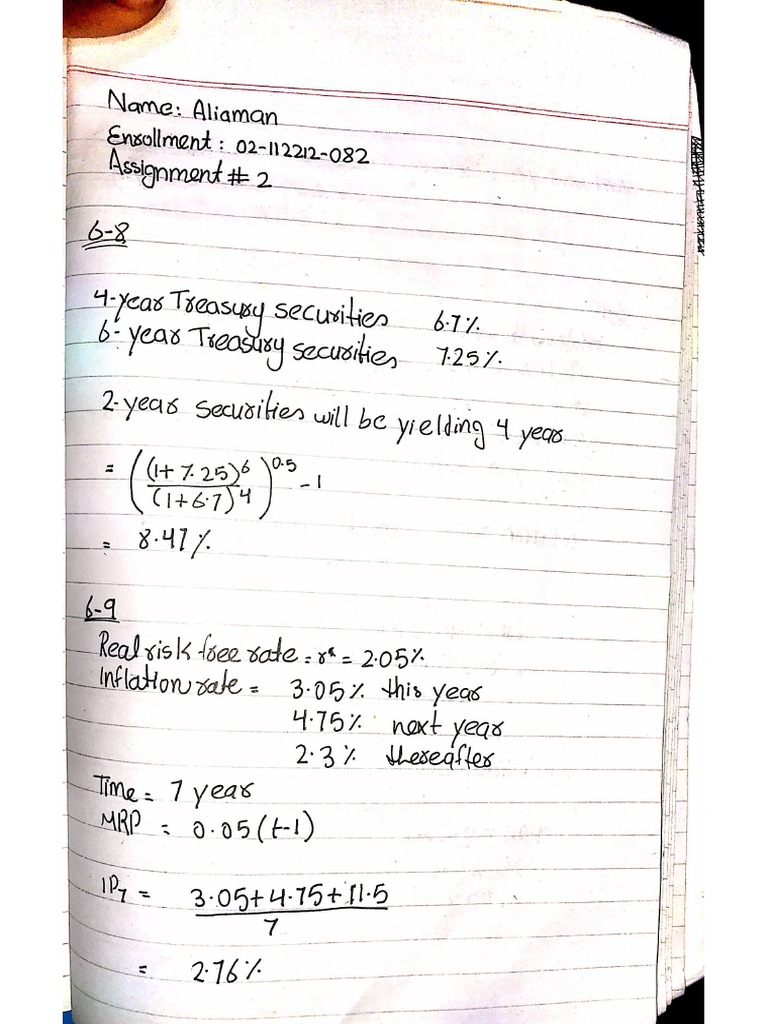 Name: Aliaman
Enrollment: 02-112212-082
Assignment # 2
6-8
4-year Treasury securities 6.7%
6-year Treasury securities 7.25%
2-year securities will be yielding 4 year
= ((1+7.25)^6 / (1+6.7)^4)^0.5 - 1
= 8.47%
6-9
Real risk free rate = r* = 2.05%
Inflation rate = 3.05% this year
4.75% next year
2.3% thereafter
Time = 7 year
MRP = 0.05(t-1)
IP7 = 3.05+4.75+11.5 / 7
= 2.76%